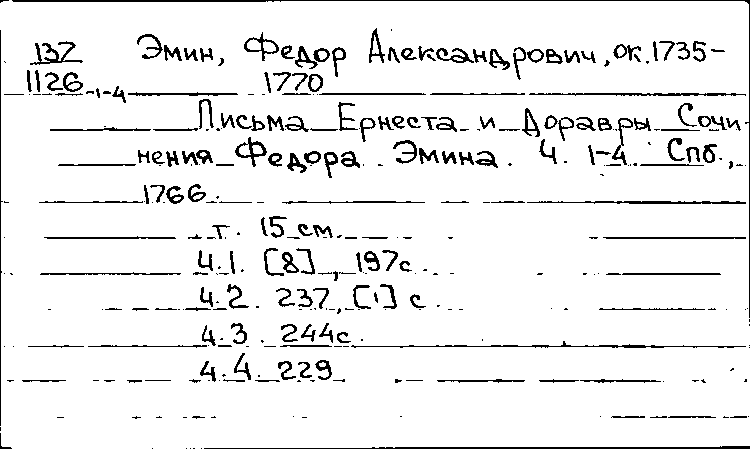 137 Эмин, Федор Александрович, ок. 1735-
1126-1-4 1770
Письма Ернеста и Доравры Сочи-
нения Федора Эмина. Ч. 1-4. Спб.,
1766.
т. 15 см.
Ч.1. [8], 197с.
Ч.2. 237, [1] с.
Ч.3. 244с.
Ч.4. 229